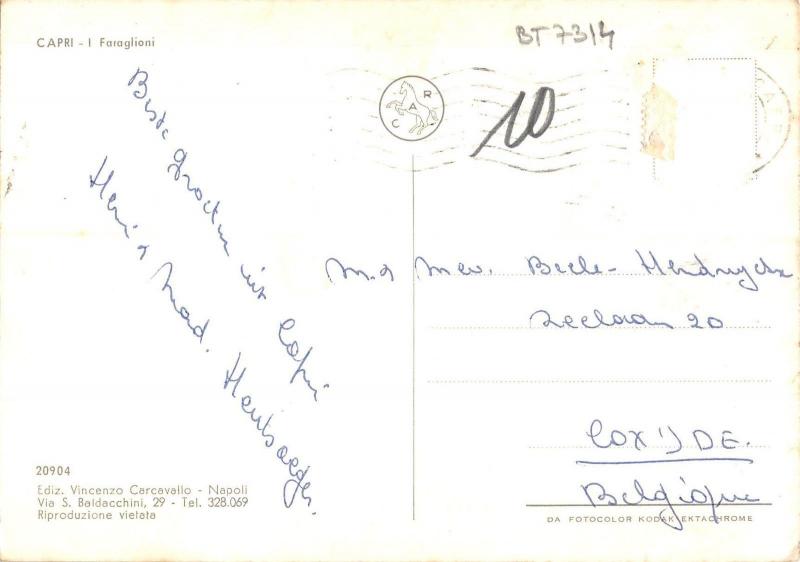 CAPRI - I Faraglioni
BT 73/4
CAR
10
Beste Groeten uit Capri
Heer & Mad.
M. & Mev. Beele - Hendryckx
Zeelaan 20
COXIJDE.
Belgique
20904
Ediz. Vincenzo Carcavallo - Napoli
Via S. Baldacchini, 29 - Tel. 328.069
Riproduzione vietata
DA FOTOCOLOR KODAK EKTACHROME